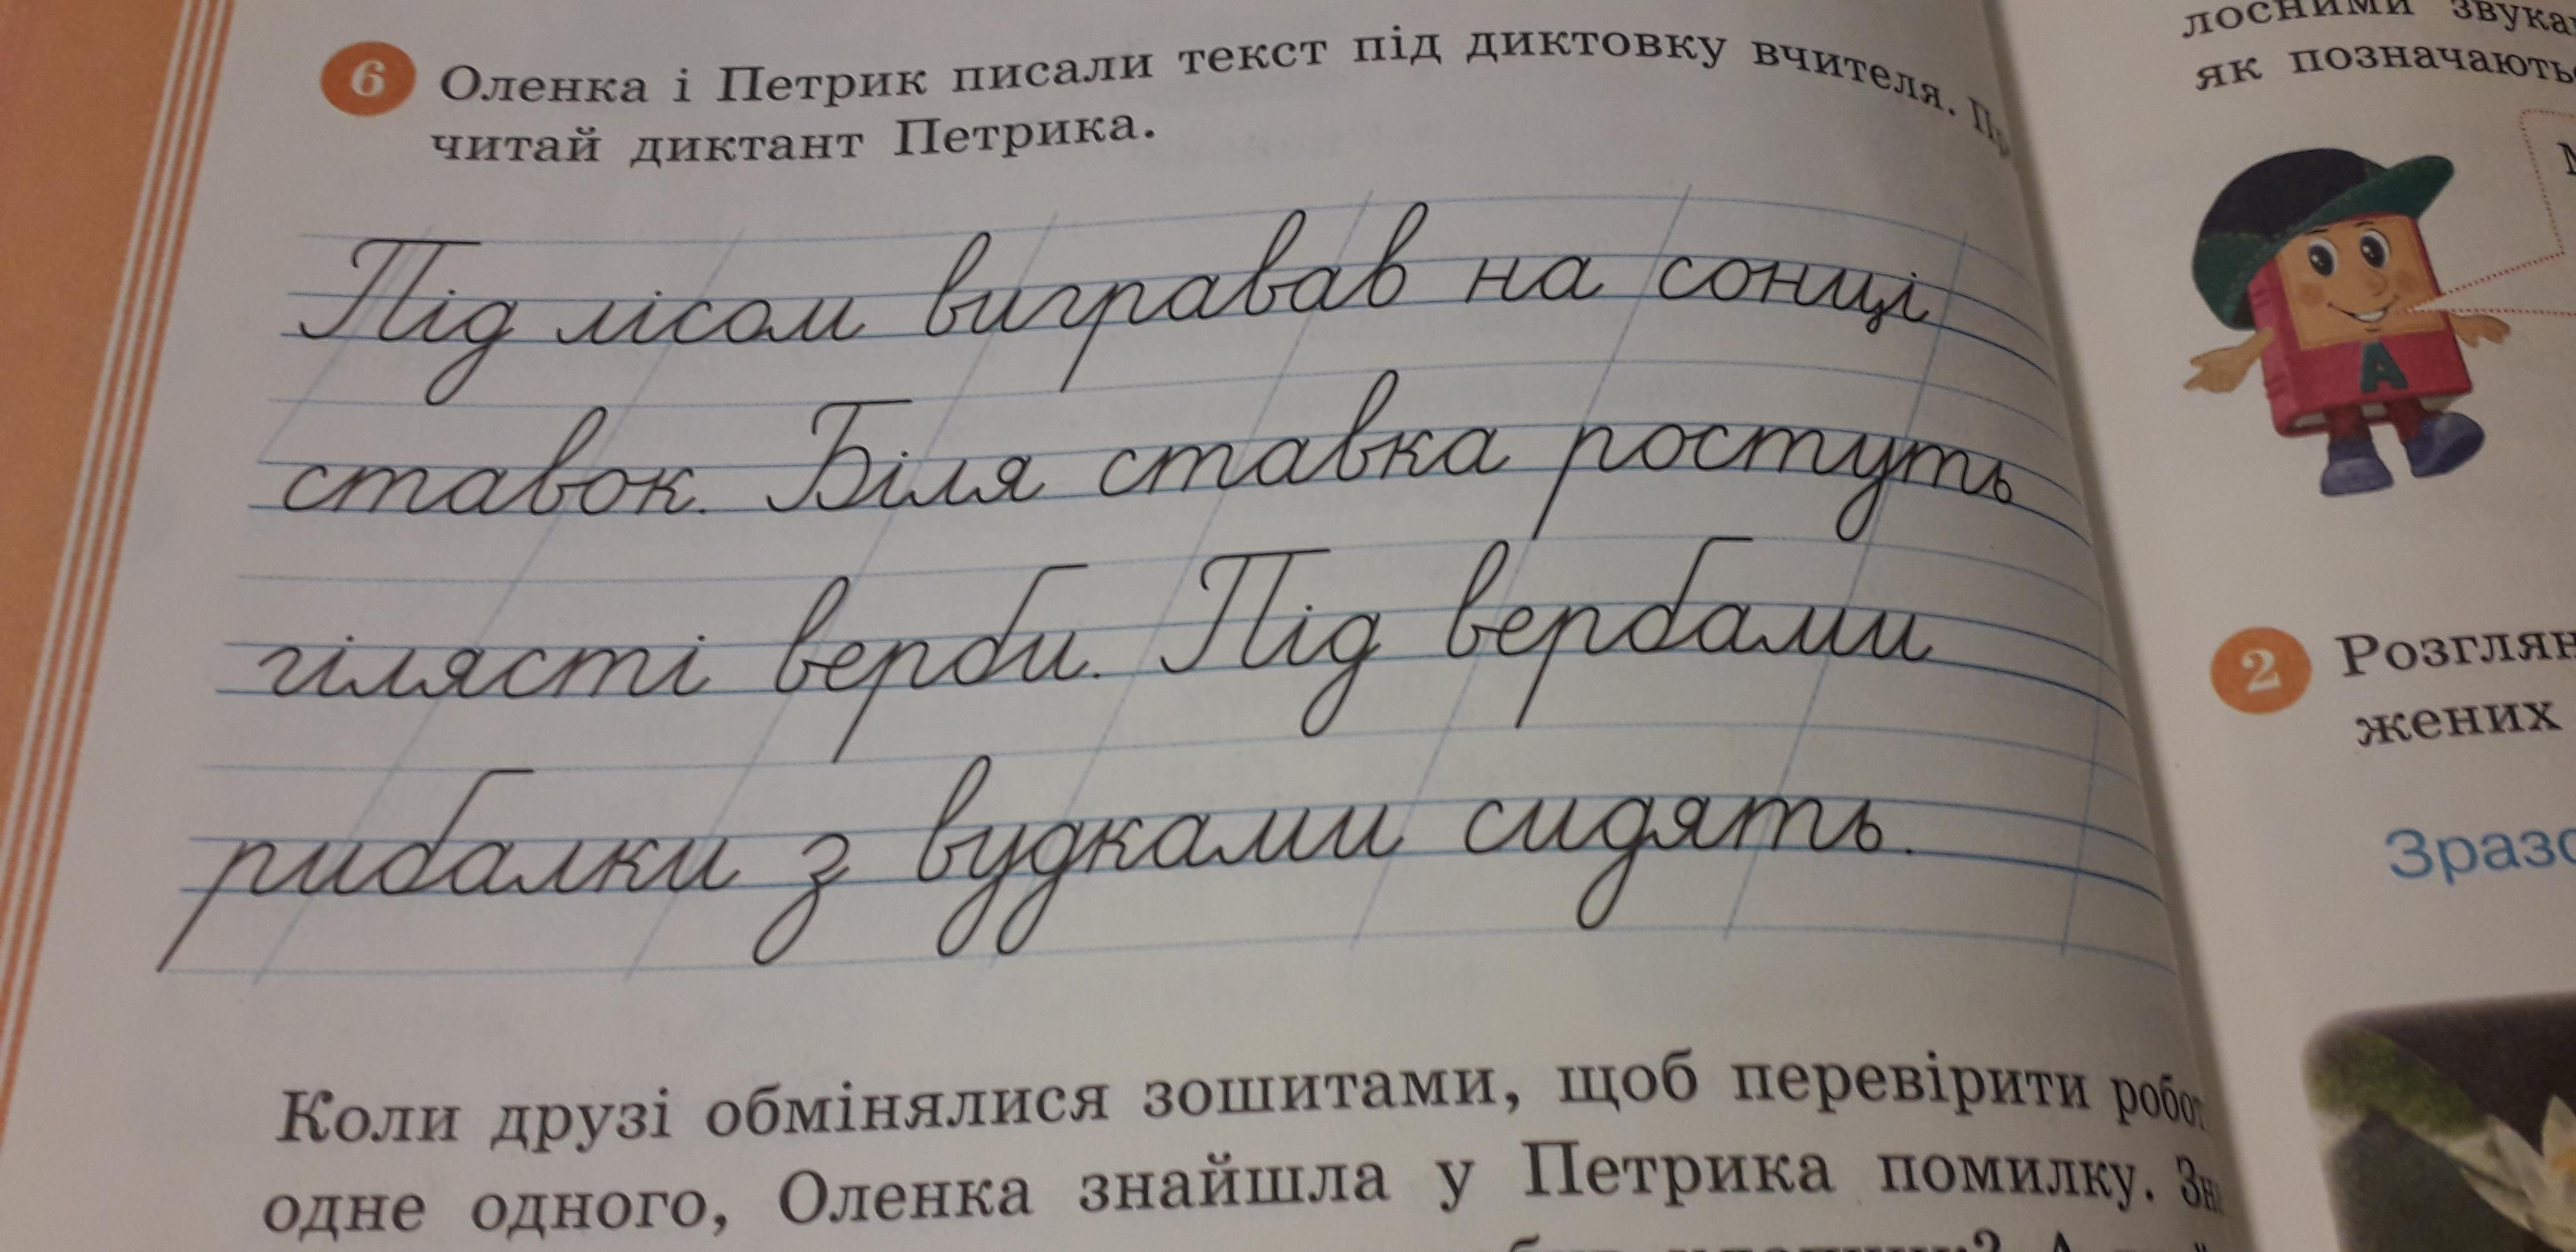 6 Оленка і Петрик писали текст під диктовку вчителя. Пр
читай диктант Петрика.
Під лісом вигравав на сонці
ставок. Біля ставка ростуть
гілясті верби. Під вербами
рибалки з вудками сидять.
Коли друзі обмінялися зошитами, щоб перевірити робот
одне одного, Оленка знайшла у Петрика помилку. Зн
лосними звука
як позначають
А
2 Розглян
жених
Зразо